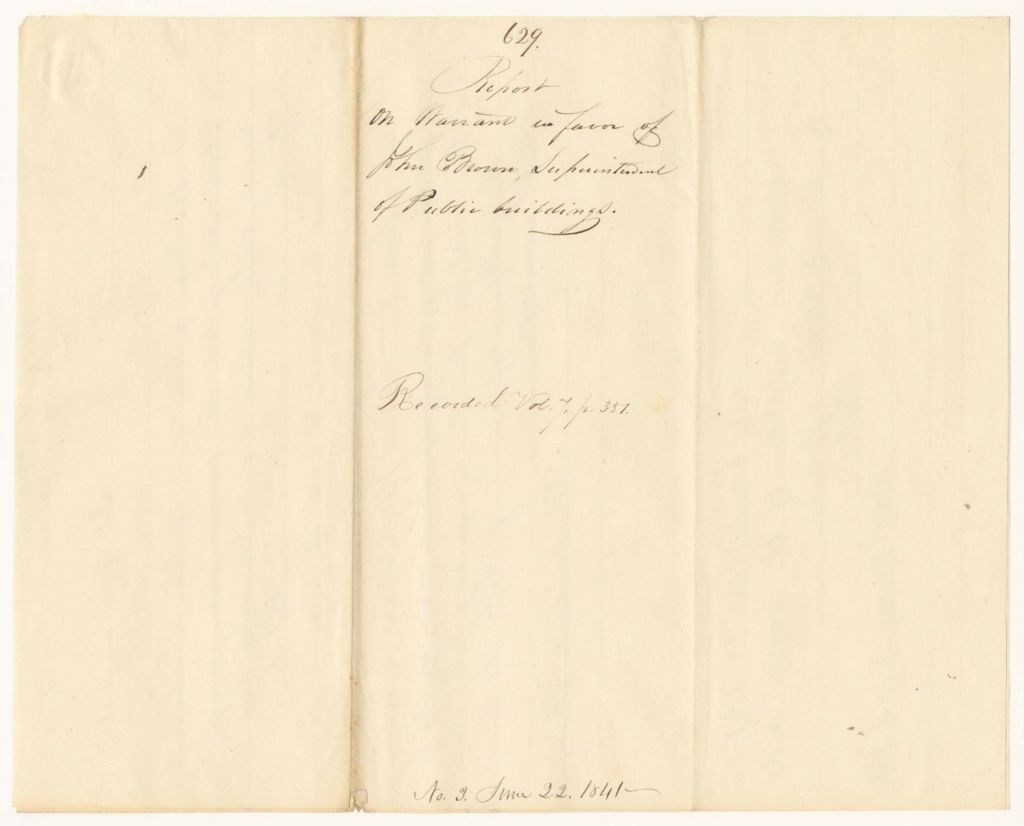 629.
Report
On Warrant in favor of
John Brown, Superintendent
of Public buildings.
Recorded Vol. 7, p. 357.
No. 3. June 22. 1841